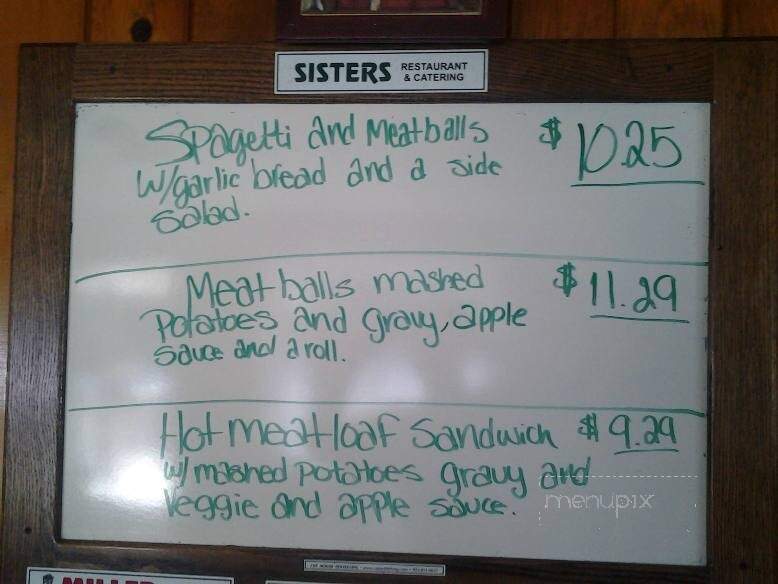 SISTERS RESTAURANT & CATERING
Spagetti and Meatballs $ 10.25
w/garlic bread and a side
salad.
Meatballs mashed $ 11.29
Potatoes and gravy, apple
sauce and a roll.
Hot meatloaf Sandwich $ 9.29
w/ mashed potatoes gravy and
veggie and apple sauce.
menupix
MILLER